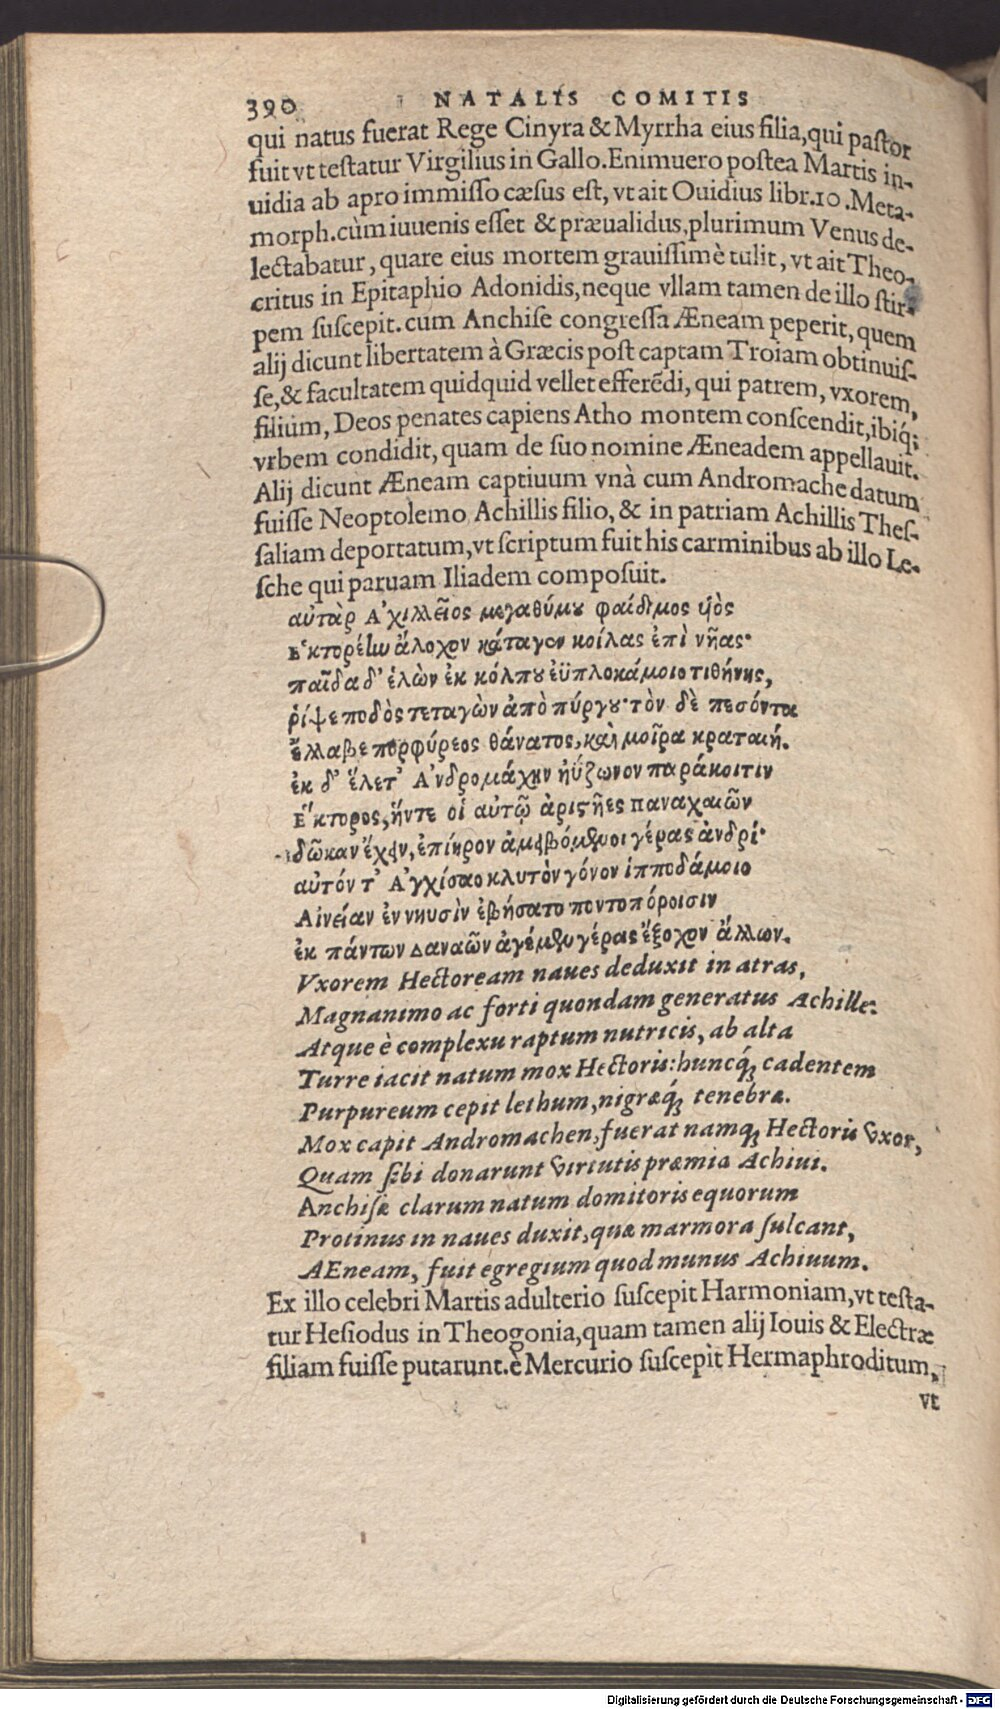 390 NATALIS COMITIS
qui natus fuerat Rege Cinyra & Myrrha eius filia, qui pastor
fuit vt testatur Virgilius in Gallo. Enimuero postea Martis in-
uidia ab apro immisso cæsus est, vt ait Ouidius libr.10. Meta-
morph. cùm iuuenis esset & præualidus, plurimum Venus de-
lectabatur, quare eius mortem grauissimè tulit, vt ait Theo-
critus in Epitaphio Adonidis, neque vllam tamen de illo stir-
pem suscepit. cum Anchise congressa Æneam peperit, quem
alij dicunt libertatem à Græcis post captam Troiam obtinuis-
se, & facultatem quidquid vellet efferēdi, qui patrem, vxorem,
filium, Deos penates capiens Atho montem conscendit, ibiq́;
vrbem condidit, quam de suo nomine Æneadem appellauit.
Alij dicunt Æneam captiuum vnà cum Andromache datum
fuisse Neoptolemo Achillis filio, & in patriam Achillis Thes-
saliam deportatum, vt scriptum fuit his carminibus ab illo Le-
sche qui paruam Iliadem composuit.
αὐτὰρ Ἀχιλλῆος μεγαθύμου φαίδιμος υἱὸς
Ἑκτορέην ἄλοχον κάταγεν κοίλας ἐπὶ νῆας·
παῖδα δ' ἑλὼν ἐκ κόλπου ἐϋπλοκάμοιο τιθήνης,
ῥίψε ποδὸς τεταγὼν ἀπὸ πύργου· τὸν δὲ πεσόντα
ἔλλαβε πορφύρεος θάνατος, καὶ μοῖρα κραταιή.
ἐκ δ' ἕλετ' Ἀνδρομάχην ἠΰζωνον παράκοιτιν
Ἕκτορος, ἥντε οἱ αὐτῷ ἀριστῆες παναχαιῶν
δῶκαν ἔχειν, ἐπίηρον ἀμειβόμενοι γέρας ἀνδρί·
αὐτόν τ' Ἀγχίσαο κλυτὸν γόνον ἱπποδάμοιο
Αἰνείαν ἐν νηυσὶν ἐβήσατο ποντοπόροισιν
ἐκ πάντων Δαναῶν ἀγέμεν γέρας ἔξοχον ἄλλων.
Vxorem Hectoream naues deduxit in atras,
Magnanimo ac forti quondam generatus Achille:
Atque è complexu raptum nutricis, ab alta
Turre iacit natum mox Hectoris: huncq́; cadentem
Purpureum cepit lethum, nigræq́; tenebræ.
Mox capit Andromachen, fuerat namq; Hectoris vxor,
Quam sibi donarunt virtutis præmia Achiui.
Anchisæ clarum natum domitoris equorum
Protinus in naues duxit, quæ marmora sulcant,
AEneam, fuit egregium quod munus Achiuum.
Ex illo celebri Martis adulterio suscepit Harmoniam, vt testa-
tur Hesiodus in Theogonia, quam tamen alij Iouis & Electræ
filiam fuisse putarunt. è Mercurio suscepit Hermaphroditum,
vt
Digitalisierung gefördert durch die Deutsche Forschungsgemeinschaft - DFG